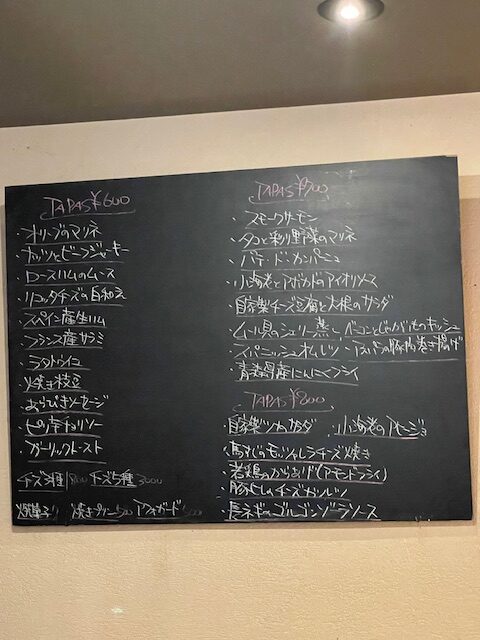 TAPAS ¥600
・オリーブのマリネ
・ナッツとビーフジャーキー
・ロースハムのムース
・リコッタチーズの白和え
・スペイン産生ハム
・フランス産サラミ
・ラタトゥイユ
・焼き枝豆
・あらびきソーセージ
・ピリ辛チョリソー
・ガーリックトースト
チーズ3種 チーズ5種
焼きプリン アフォガード
TAPAS ¥700
・スモークサーモン
・タコと彩り野菜のマリネ
・パテ・ド・カンパーニュ
・小海老とアボカドのアイオリソース
・自家製チーズ豆腐と大根のサラダ
・ムール貝のシェリー蒸し ・ベーコンとじゃがいものキッシュ
・スパニッシュオムレツ ・アスパラの豚肉巻き揚げ
・青森県産にんにくフライ
TAPAS ¥800
・自家製ツナサラダ ・小海老のアヒージョ
・馬すじのモッツァレラチーズ焼き
・若鶏のからあげ(アーモンドフライ)
・豚ヒレのチーズカツレツ
・長ネギのゴルゴンゾーラソース